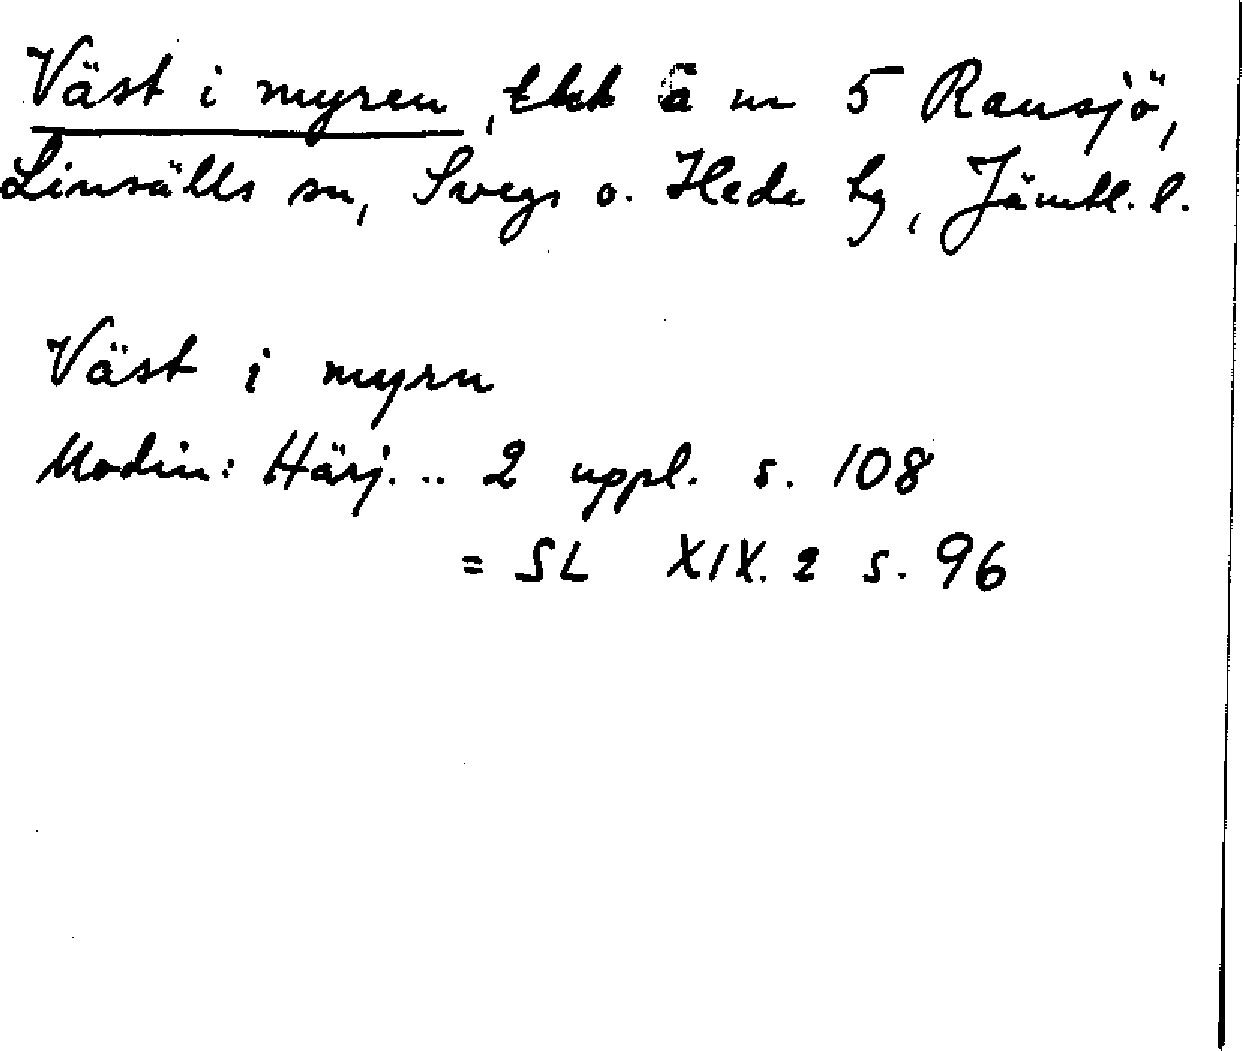 Väst i myren, tkt å nr 5 Ransjö,
Linsälls sn, Svegs o. Hede hg, Jämtl. l.
Väst i myrn
Modin: Härj. .. 2 uppl. s. 108
= SL XIX. 2 s. 96